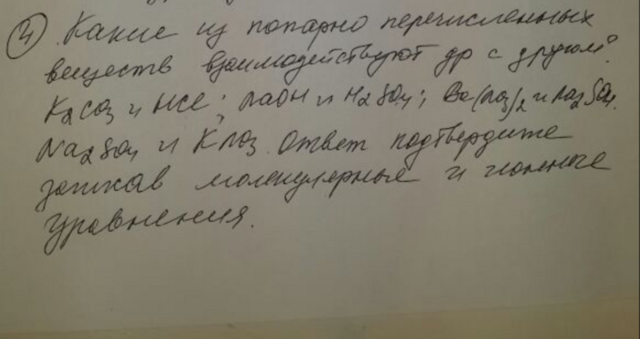 4. Какие из попарно перечисленных
веществ взаимодействуют др с другом?
K2CO3 и HCl; NaOH и H2SO4; Ba(NO3)2 и Na2SO4.
Na2SO4 и KNO3. Ответ подтвердите
записав молекулярные и ионные
уравнения.